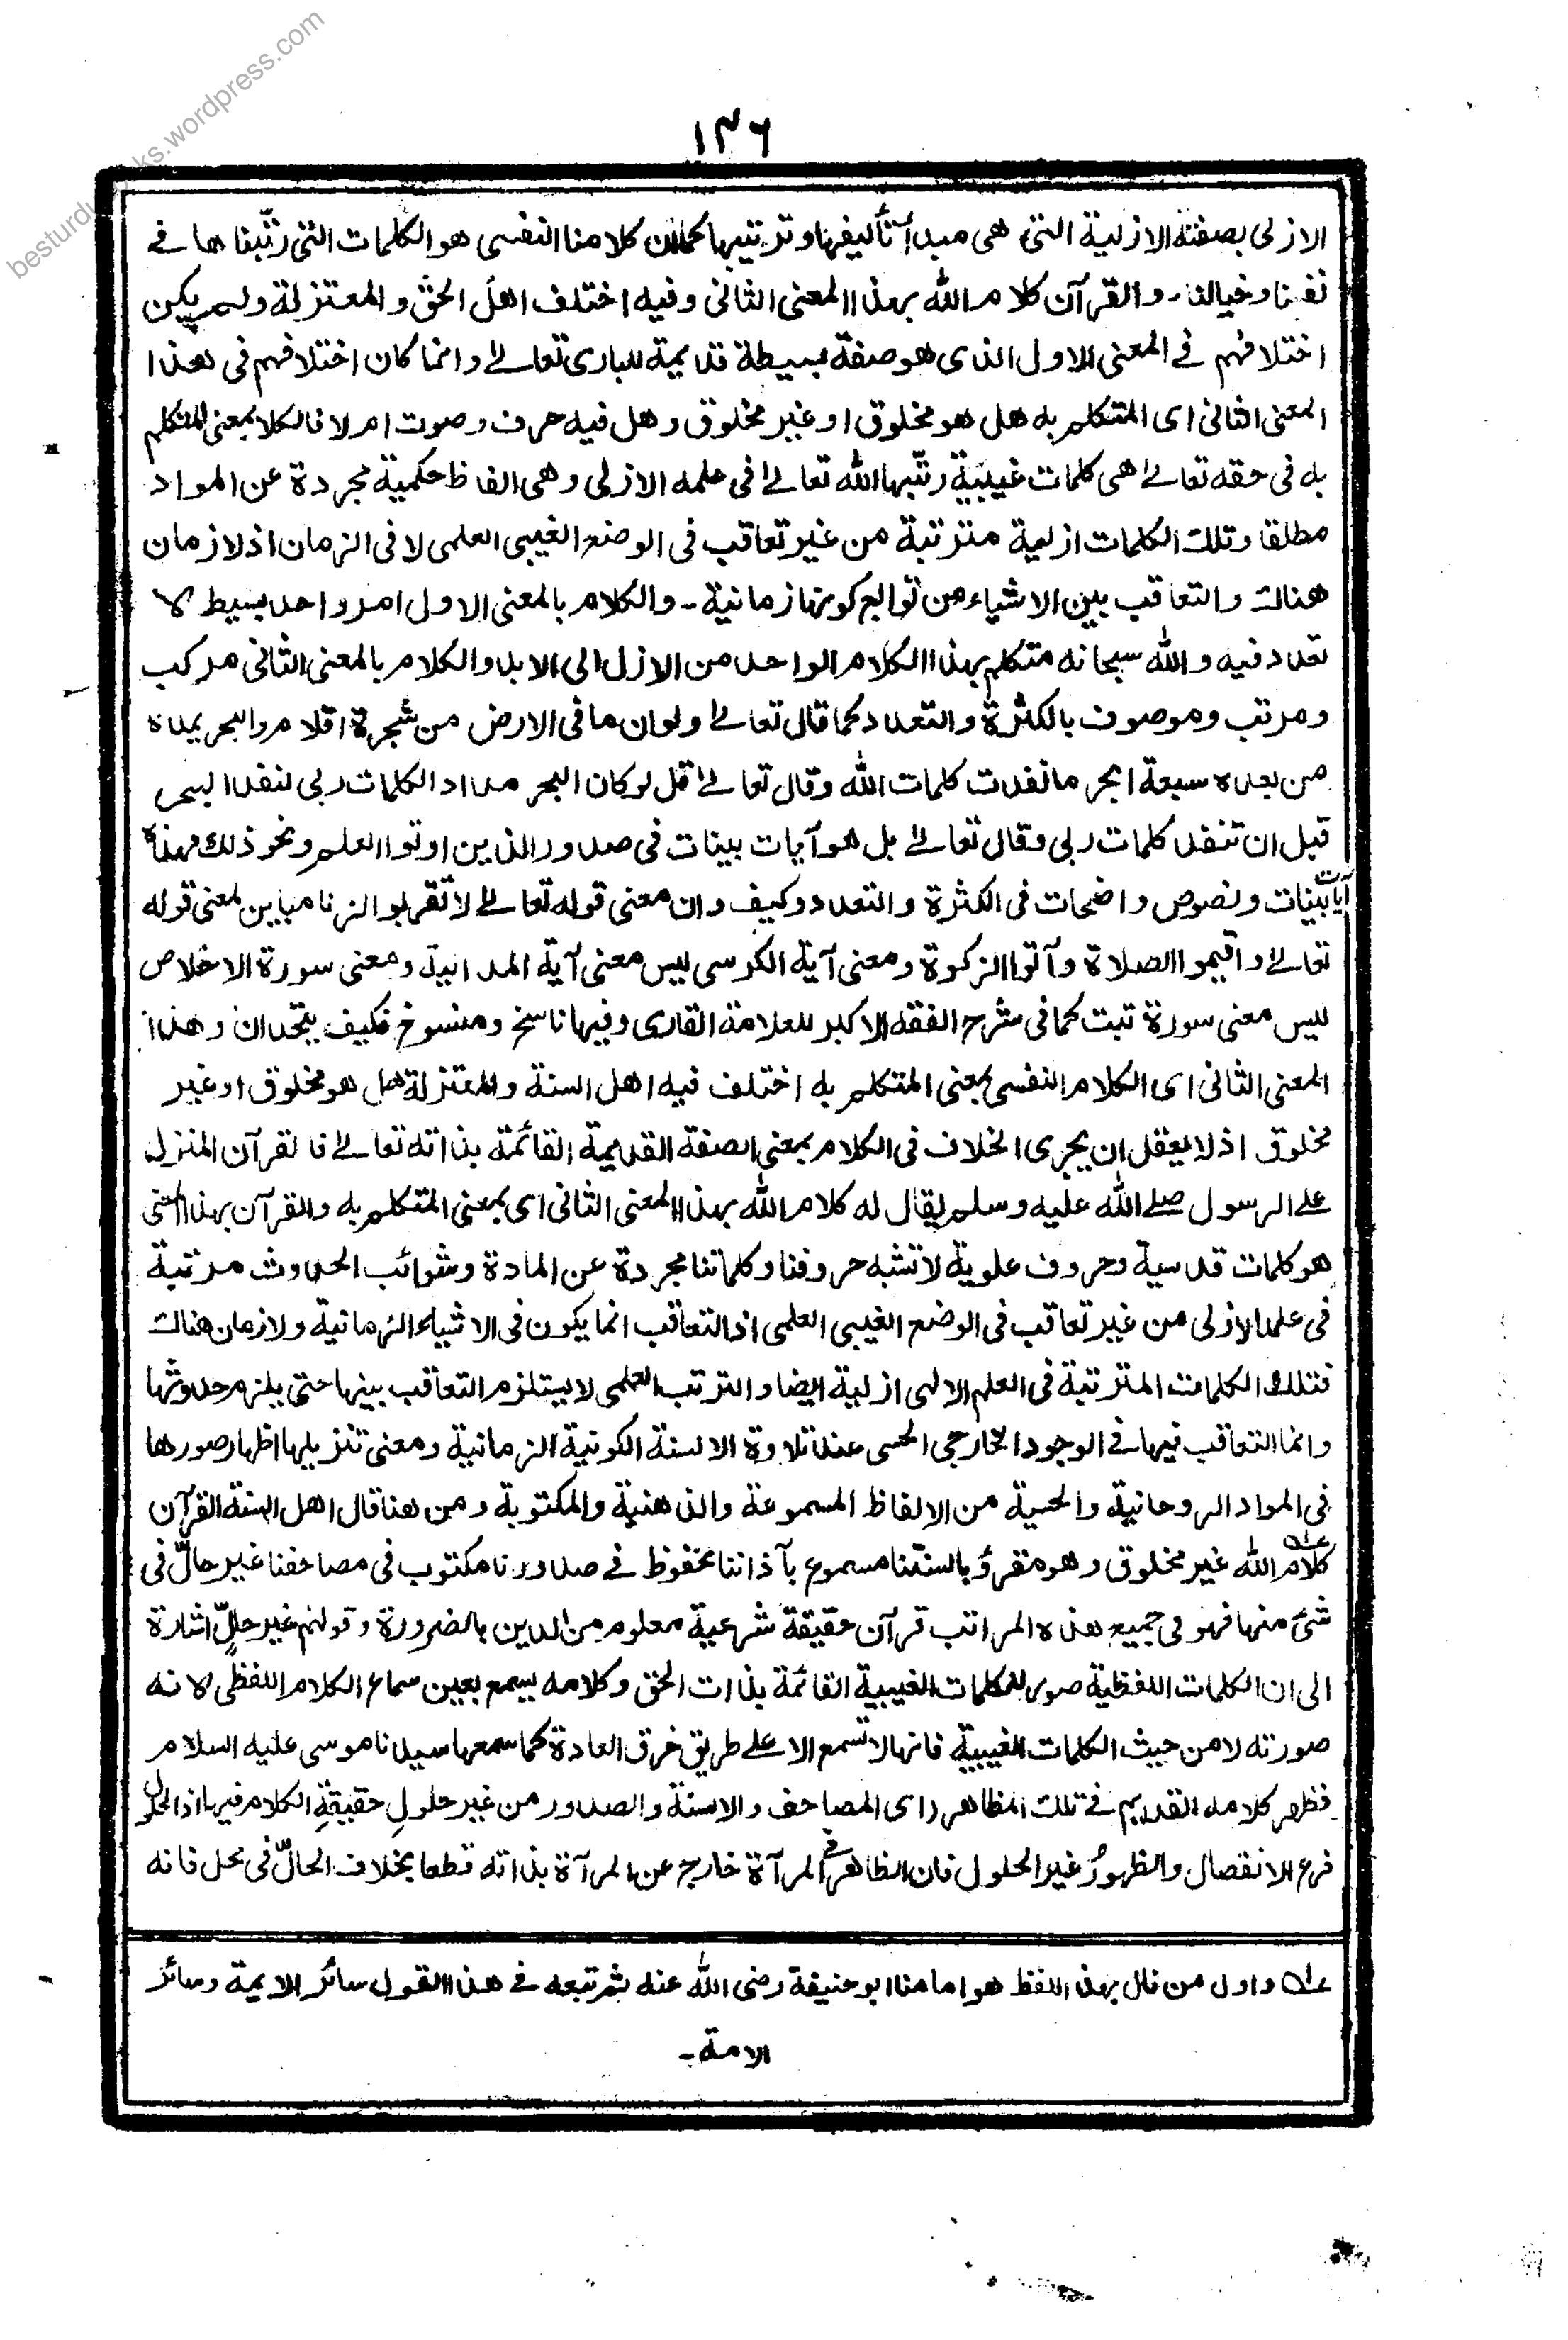 besturdubooks.wordpress.com
۱۳۶
الازلی بصفته الازلیة التی هی مبدأ تألیفها وترتیبها کما ان کلامنا النفسی هو الکلمات التی رتّبناها فے
نفسنا وخیالنا۔ والقرآن کلام اللہ بهذا المعنی الثانی وفیه اختلف اهل الحق والمعتزلة ولم یکن
اختلافهم فے المعنی الاول الذی هو صفة بسیطة قدیمة للباری تعالےٰ وانما کان اختلافهم فی هذا
المعنی الثانی ای المتکلم به هل هو مخلوق او غیر مخلوق وهل فیه حرف وصوت ام لا فالکلام بمعنی المتکلم
به فی حقه تعالےٰ هی کلمات غیبیة رتّبها اللہ تعالےٰ فی علمه الازلی وهی الفاظ حکمیة مجردة عن المواد
مطلقا وتلک الکلمات ازلیة مترتبة من غیر تعاقب فی الوضع الغیبی العلمی لا فی الزمان اذ لا زمان
هناک والتعاقب بین الاشیاء من توابع کونها زمانیة۔ والکلام بالمعنی الاول امر واحد بسیط لا
تعدد فیه واللہ سبحانه متکلم بهذا الکلام الواحد من الازل الی الابد والکلام بالمعنی الثانی مرکب
ومرتب وموصوف بالکثرة والتعدد کما قال تعالےٰ ولو ان ما فی الارض من شجرة اقلام والبحر یمده
من بعده سبعة ابحر ما نفدت کلمات اللہ وقال تعالےٰ قل لو کان البحر مدادا لکلمات ربی لنفد البحر
قبل ان تنفد کلمات ربی وقال تعالےٰ بل هو آیات بینات فی صدور الذین اوتوا العلم ونحو ذلک فهذه
آیات بینات ونصوص واضحات فی الکثرة والتعدد وکیف وان معنی قوله تعالےٰ لا تقربوا الزنا مباین لمعنی قوله
تعالےٰ واقیموا الصلاة وآتوا الزکوة ومعنی آیة الکرسی لیس معنی آیة المداینة ومعنی سورة الاخلاص
لیس معنی سورة تبت کما فی شرح الفقه الاکبر للعلامة القاری وفیها ناسخ ومنسوخ فکیف یتحدان وهذا
المعنی الثانی ای الکلام النفسی بمعنی المتکلم به اختلف فیه اهل السنة والمعتزلة هل هو مخلوق او غیر
مخلوق اذ لا یعقل ان یجری الخلاف فی الکلام بمعنی الصفة القدیمة القائمة بذاته تعالےٰ فالقرآن المنزل
علے الرسول صلے اللہ علیه وسلم یقال له کلام اللہ بهذا المعنی الثانی ای بمعنی المتکلم به والقرآن بهذا المعنی
هو کلمات قدسیة وحروف علویة لا تشبه حروفنا وکلماتنا مجردة عن المادة وشوائب الحدوث مرتبة
فی علمه الازلی من غیر تعاقب فی الوضع الغیبی العلمی اذ التعاقب انما یکون فی الاشیاء الزمانیة ولا زمان هناک
فتلک الکلمات المترتبة فی العلم الالهی ازلیة ایضا والترتب العلمی لا یستلزم التعاقب بینها حتی یلزم حدوثها
وانما التعاقب فیها فے الوجود الخارجی الحسی عند تلاوة الالسنة الکونیة الزمانیة ومعنی تنزیلها اظهار صورها
فی المواد الروحانیة والحسیة من الالفاظ المسموعة والذهنیة والمکتوبة ومن هنا قال اهل السنة القرآن
کلام اللہ عله غیر مخلوق وهو مقرؤ بالسنتنا مسموع بآذاننا محفوظ فے صدورنا مکتوب فی مصاحفنا غیر حالّ فی
شئ منها فهو فی جمیع هذه المراتب قرآن حقیقة شرعیة معلوم من الدین بالضرورة وقولهم غیر حالّ اشارة
الی ان الکلمات اللفظیة صور للکلمات الغیبیة القائمة بذات الحق وکلامه یسمع بعین سماع الکلام اللفظی لانه
صورته لا من حیث الکلمات الغیبیة فانها لا تسمع الا علے طریق خرق العادة کما سمعها سیدنا موسی علیه السلام
فظهر کلامه القدیم فے تلک المظاهر (ای المصاحف والالسنة والصدور من غیر حلولِ حقیقةِ الکلام فیها اذ الحلول
فرع الانفصال والظهورُ غیر الحلول فان الظاهر فی المرآة خارج عن المرآة بذاته قطعا بخلاف الحالّ فی محل فانه
عله واول من قال بهذا اللفظ هو امامنا ابو حنیفة رضی اللہ عنه ثم تبعه فے هذا القول سائر الایمة وسائر
الامة۔